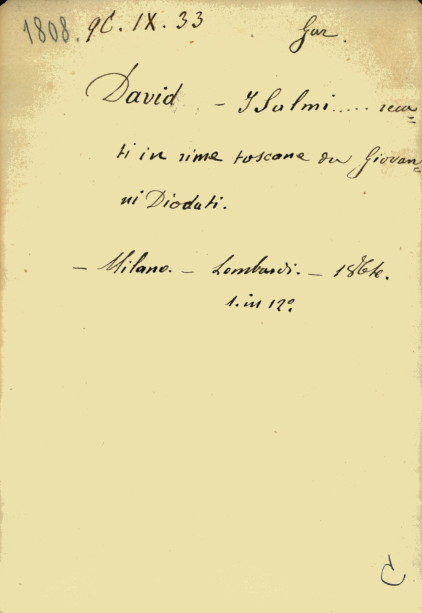 1808. 9C. IX. 33
Gar.
David – I Salmi ..... reca=
ti in rime toscane da Giovan=
ni Diodati.
– Milano. – Lombardi. –
1. in 12º
C